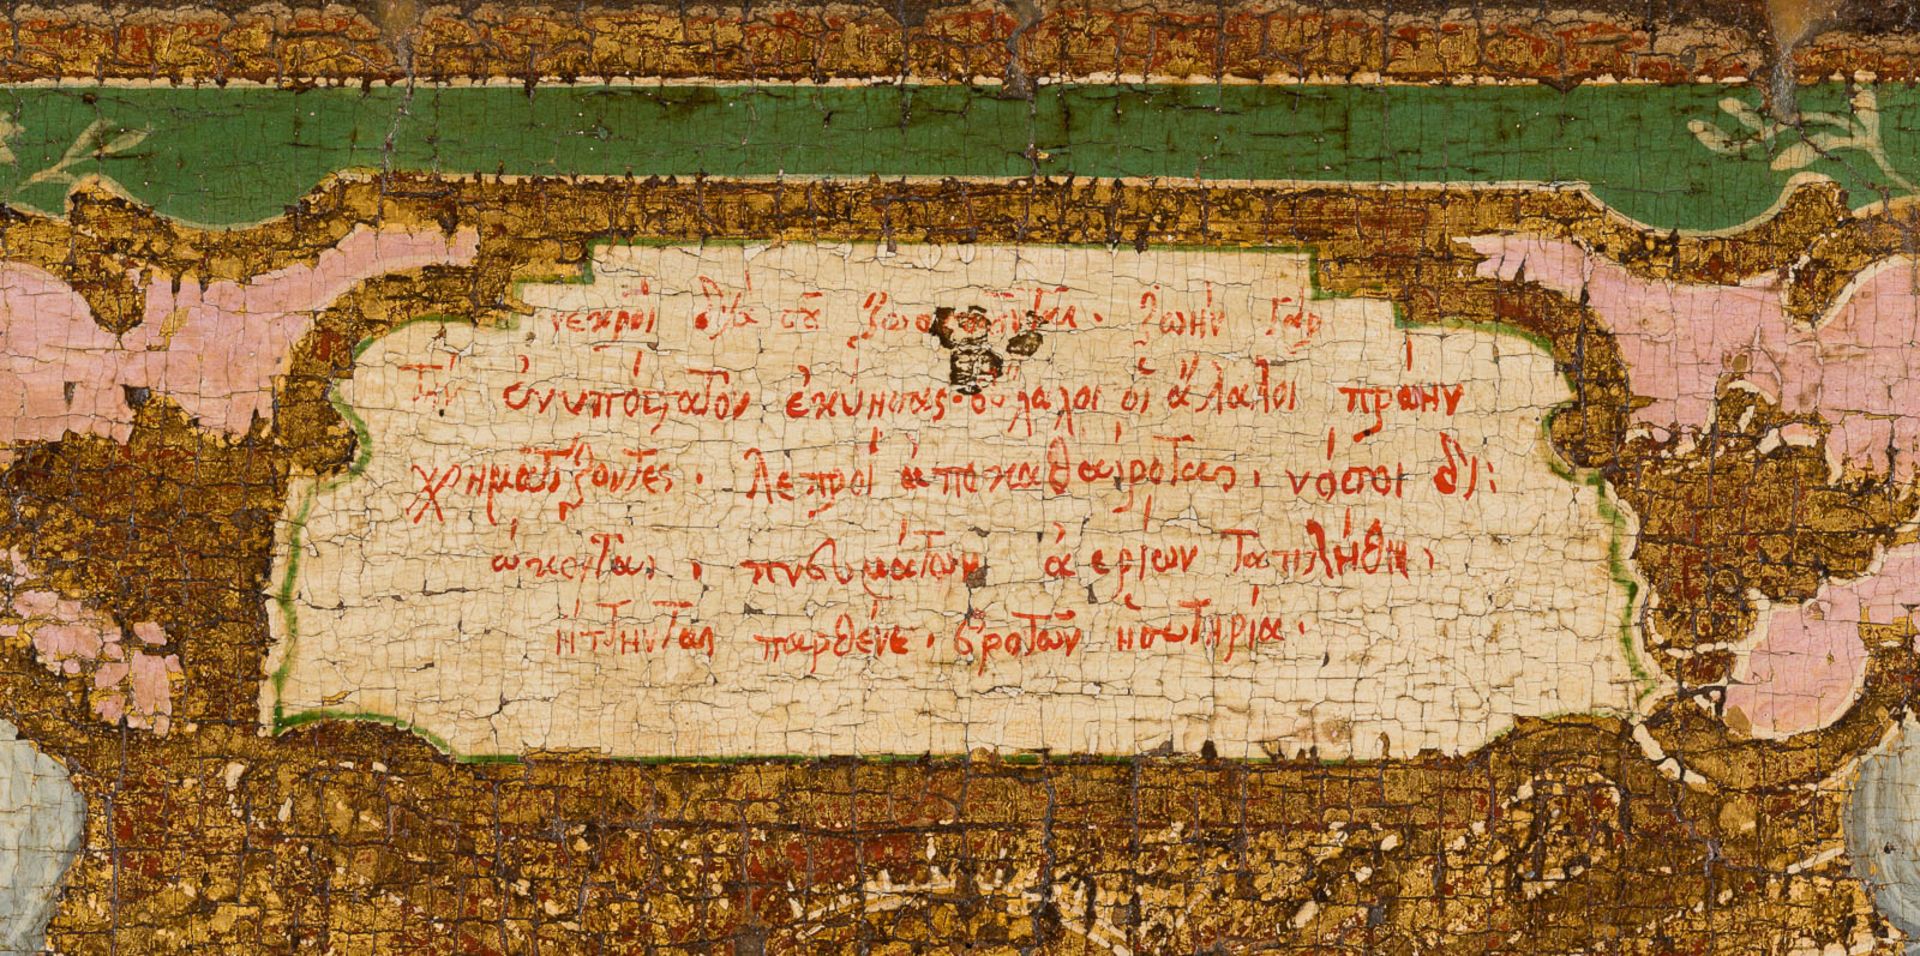 νεκροὶ διὰ σοῦ ζωοποιοῦνται. ζωὴν γὰρ
τὴν ἐνυπόστατον ἐκύησας. εὔλαλοι οἱ ἄλαλοι πρώην
χρηματίζοντες. λεπροὶ ἀποκαθαίροται. νόσοι δι:
ώκονται, πνευμάτων ἀερίων τα πλήθη,
ἥττηνται παρθένε. βροτῶν ἡ σωτηρία.